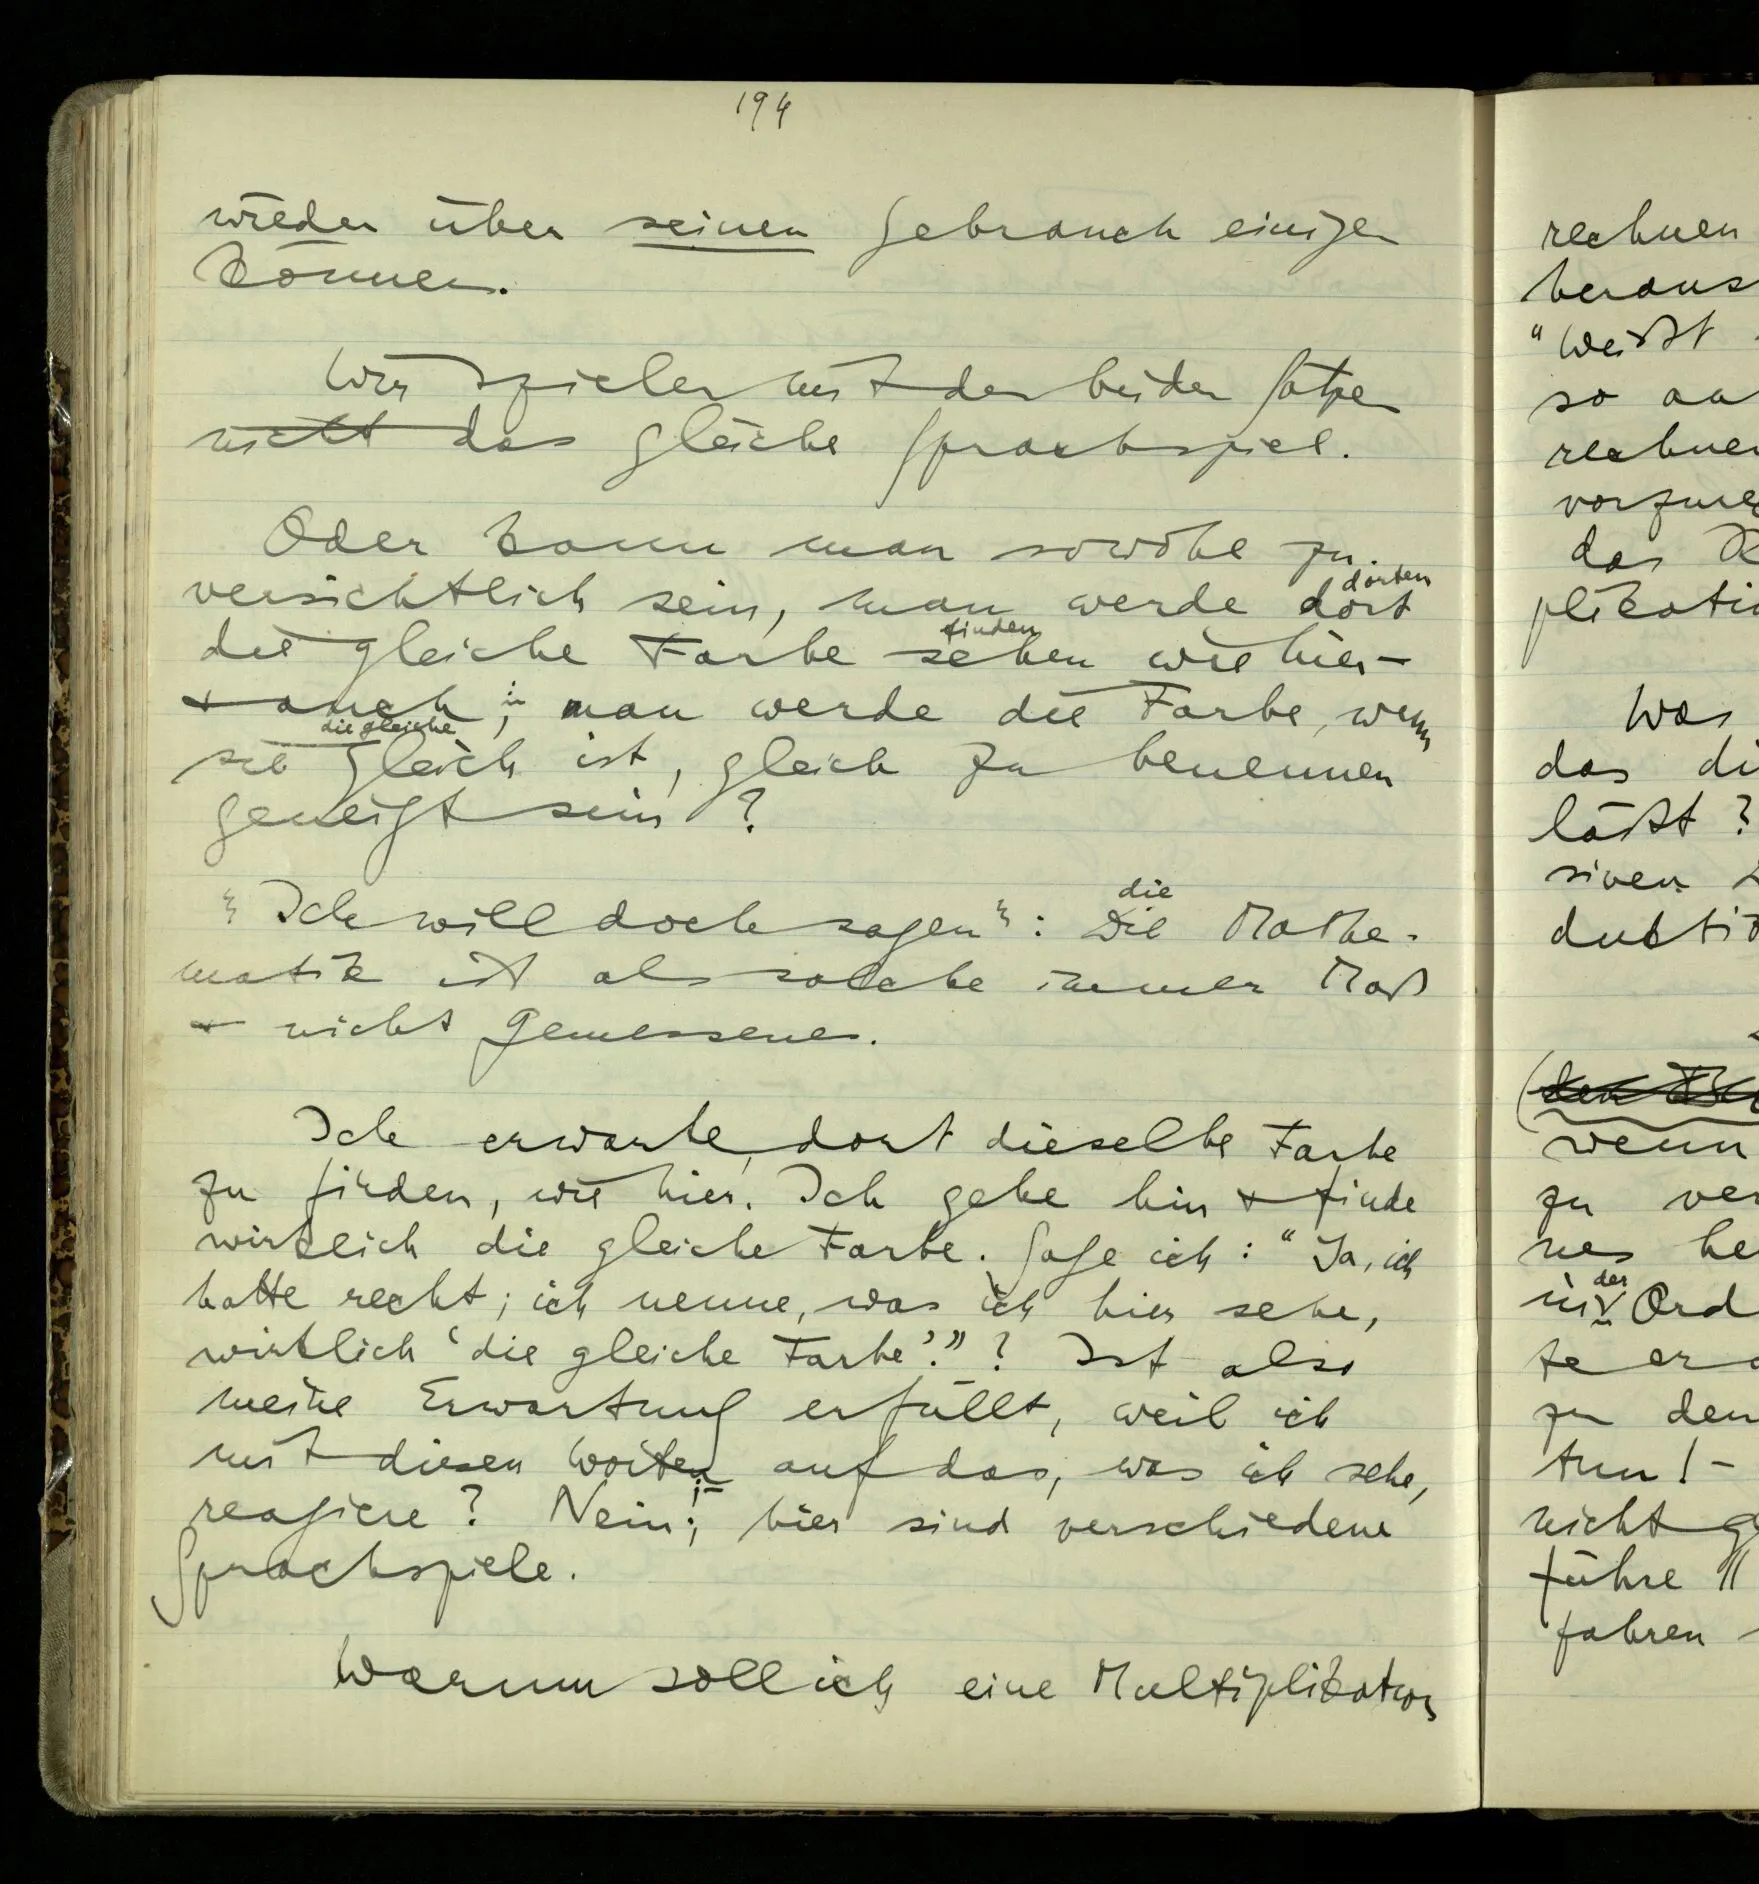 194
wieder über seinen Gebrauch einigen
können.
Wir spielen mit den beiden Sätzen
nicht das gleiche Sprachspiel.
Oder kann man sowohl zu-
versichtlich sein, man werde dort
dorten
die gleiche Farbe sehen wie hier –
finden
+ auch; man werde die Farbe, wenn
sie gleich ist, gleich zu benennen
die gleiche
geneigt sein?
"Ich will doch sagen": Die Mathe-
die
matik ist als solche immer Maß
+ nicht Gemessenes.
Ich erwarte, dort dieselbe Farbe
zu finden, wie hier. Ich gehe hin + finde
wirklich die gleiche Farbe. Sage ich: "Ja, ich
hatte recht; ich nenne, was ich hier sehe,
wirklich 'die gleiche Farbe'."? Ist also
meine Erwartung erfüllt, weil ich
mit diesen Worten auf das, was ich sehe,
reagiere? Nein; hier sind verschiedene
!–
Sprachspiele.
Warum soll ich eine Multiplikation
rechnen
heraus
"Weißt
so
rechnen
das
plikati
Was
das di
läßt?
siven
duktio
wenn
zu ver
nes be
der
in Ord
te er
zu den
tun! –
nicht g
führe //
fahren